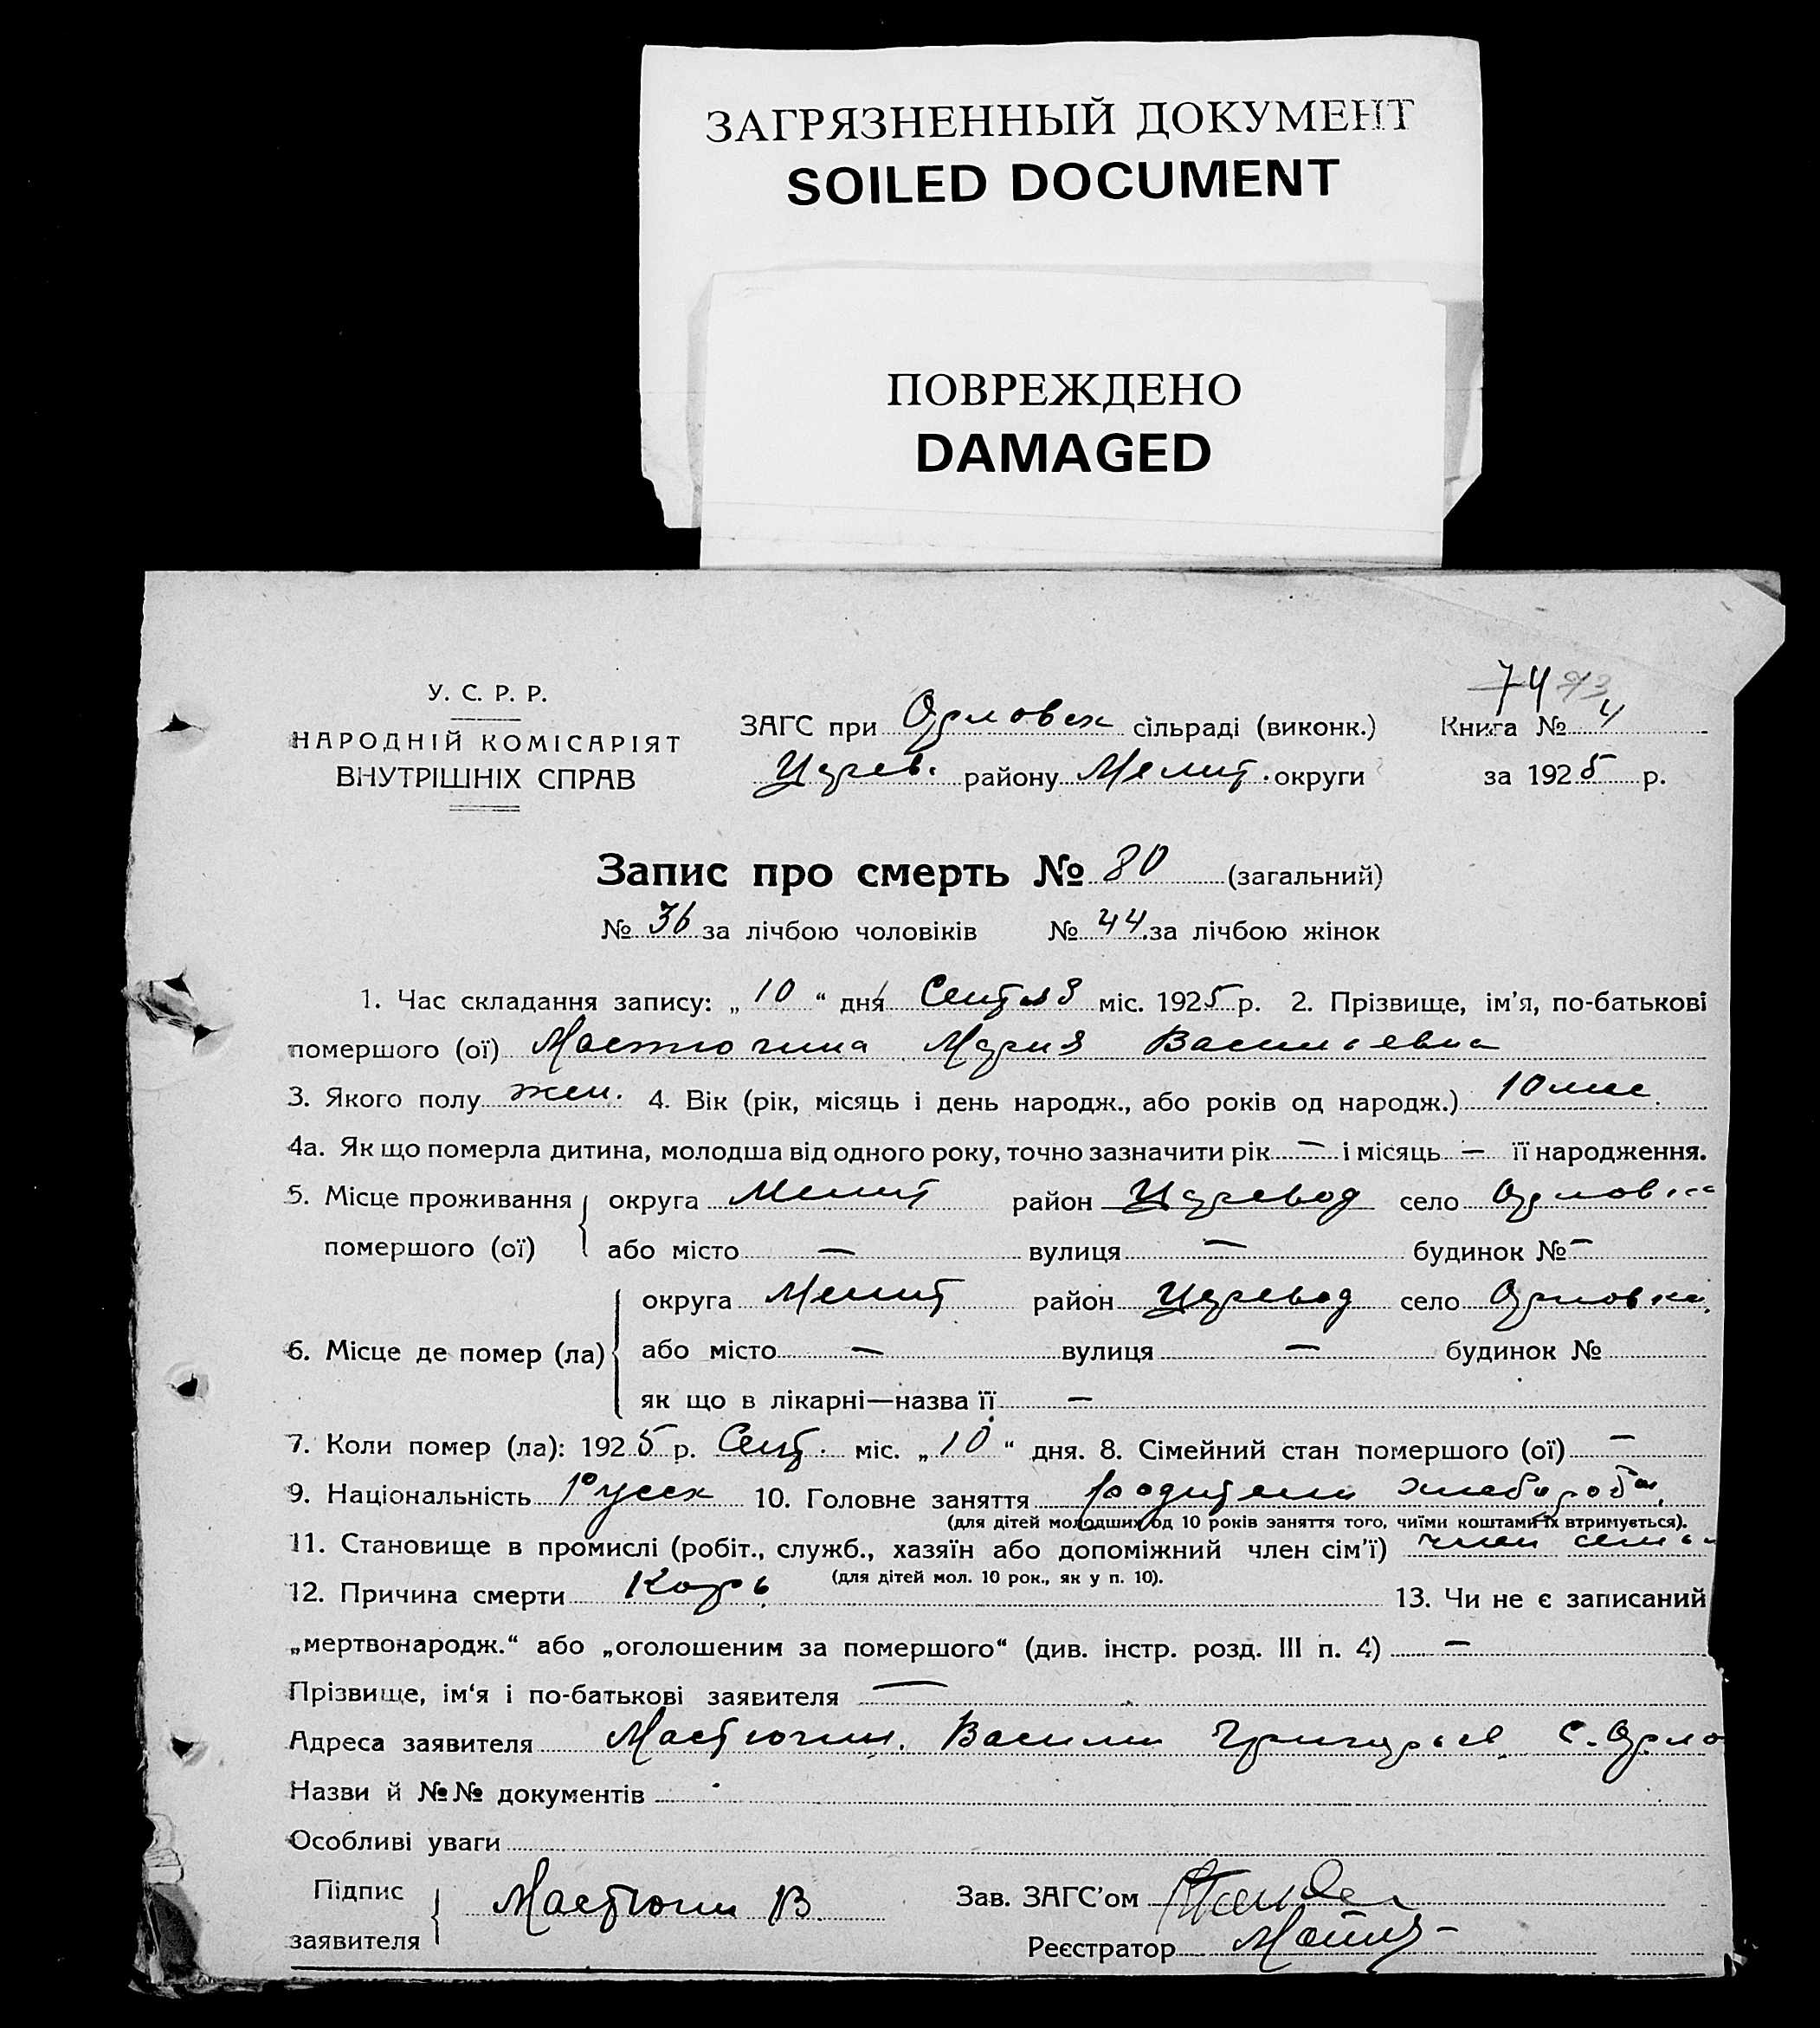 ЗАГРЯЗНЕННЫЙ ДОКУМЕНТ
SOILED DOCUMENT
ПОВРЕЖДЕНО
DAMAGED
74 93
У. С. Р. Р.
НАРОДНІЙ КОМІСАРІЯТ
ВНУТРІШНІХ СПРАВ
ЗАГС при Орловск сільраді (виконк.) Книга № 4
Царев. району Мелит. округи за 1925 р.
Запис про смерть № 80 (загальний)
№ 36 за лічбою чоловіків № 44 за лічбою жінок
1. Час складання запису: „ 10 “ дня Сентяб міс. 1925 р. 2. Прізвище, ім’я, по-батькові
помершого (ої) Мастюгина Мария Васильевна
3. Якого полу жен. 4. Вік (рік, місяць і день народж., або років од народж.) 10 мес.
4а. Як що померла дитина, молодша від одного року, точно зазначити рік — і місяць — її народження.
5. Місце проживання помершого (ої) округа Мелит район Царевод село Орловка
або місто — вулиця — будинок № —
6. Місце де помер (ла) округа Мелит район Царевод село Орловка
або місто — вулиця — будинок №
як що в лікарні—назва її —
7. Коли помер (ла): 1925 р. Сент. міс. „ 10 “ дня. 8. Сімейний стан помершого (ої) —
9. Національність Русск 10. Головне заняття родители хлебороб
(для дітей молодших од 10 років заняття того, чиїми коштами їх втримується).
11. Становище в промислі (робіт., служб., хазяїн або допоміжний член сім’ї) член семьи
(для дітей мол. 10 рок., як у п. 10).
12. Причина смерти Корь 13. Чи не є записаний
„мертвонародж.“ або „оголошеним за помершого“ (див. інстр. розд. III п. 4) —
Прізвище, ім‘я і по-батькові заявителя —
Адреса заявителя Мастюгин. Василий Григорьев с. Орло
Назви й №№ документів
Особливі уваги
Підпис заявителя Мастюгин В Зав. ЗАГС’ом
Реєстратор